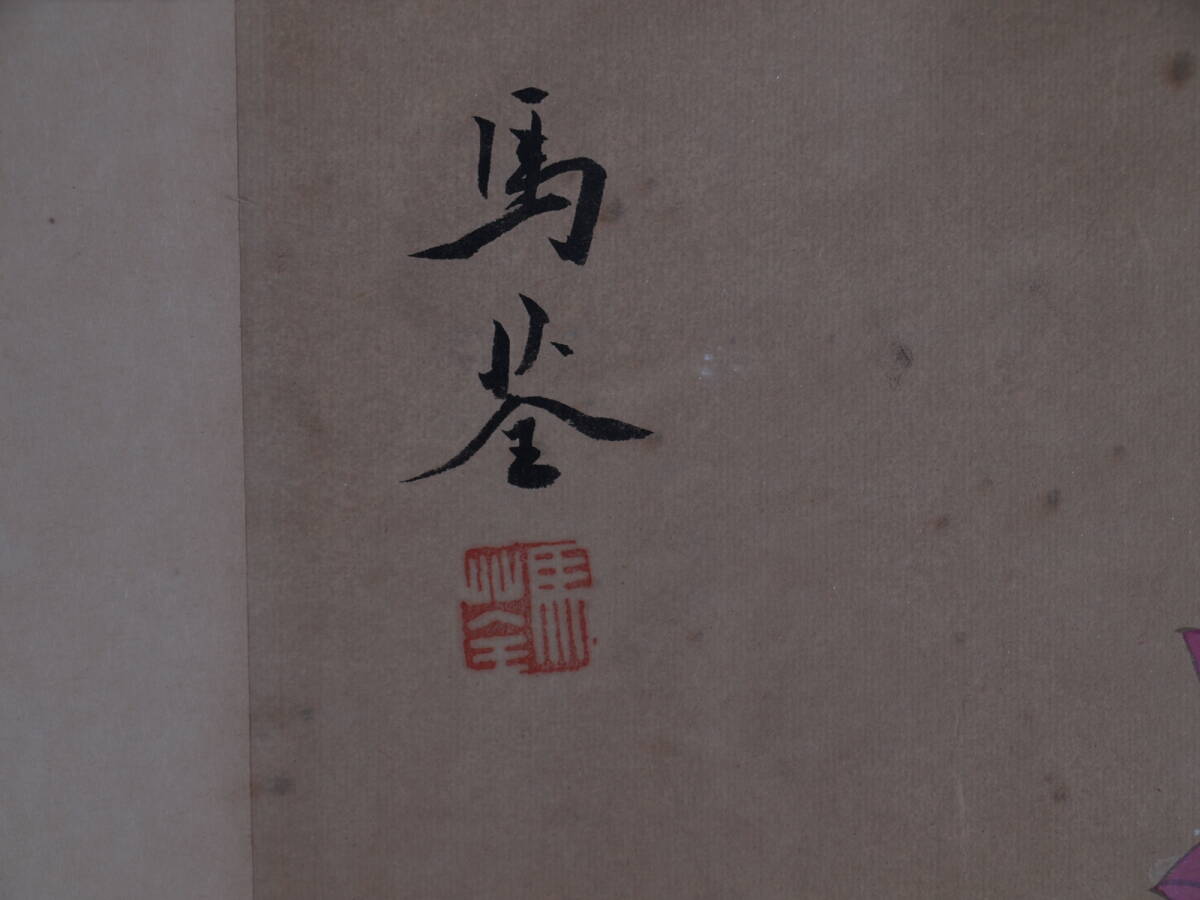 馬荃
馬荃